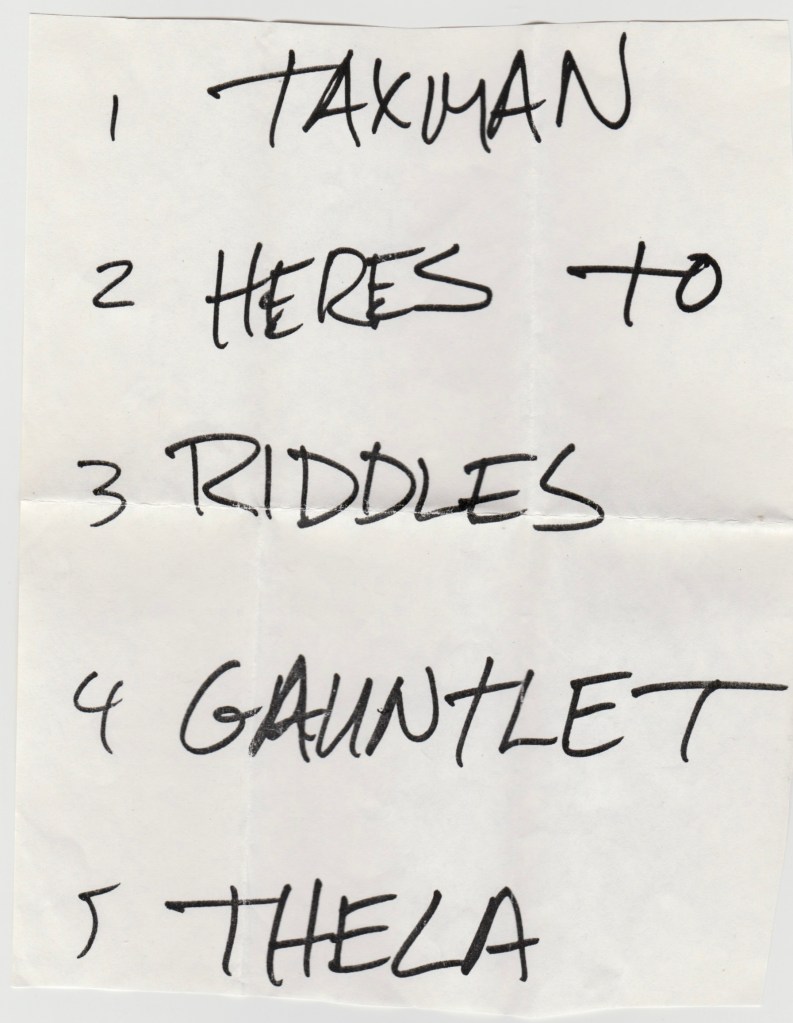 1 TAXMAN
2 HERES TO
3 RIDDLES
4 GAUNTLET
5 THELA